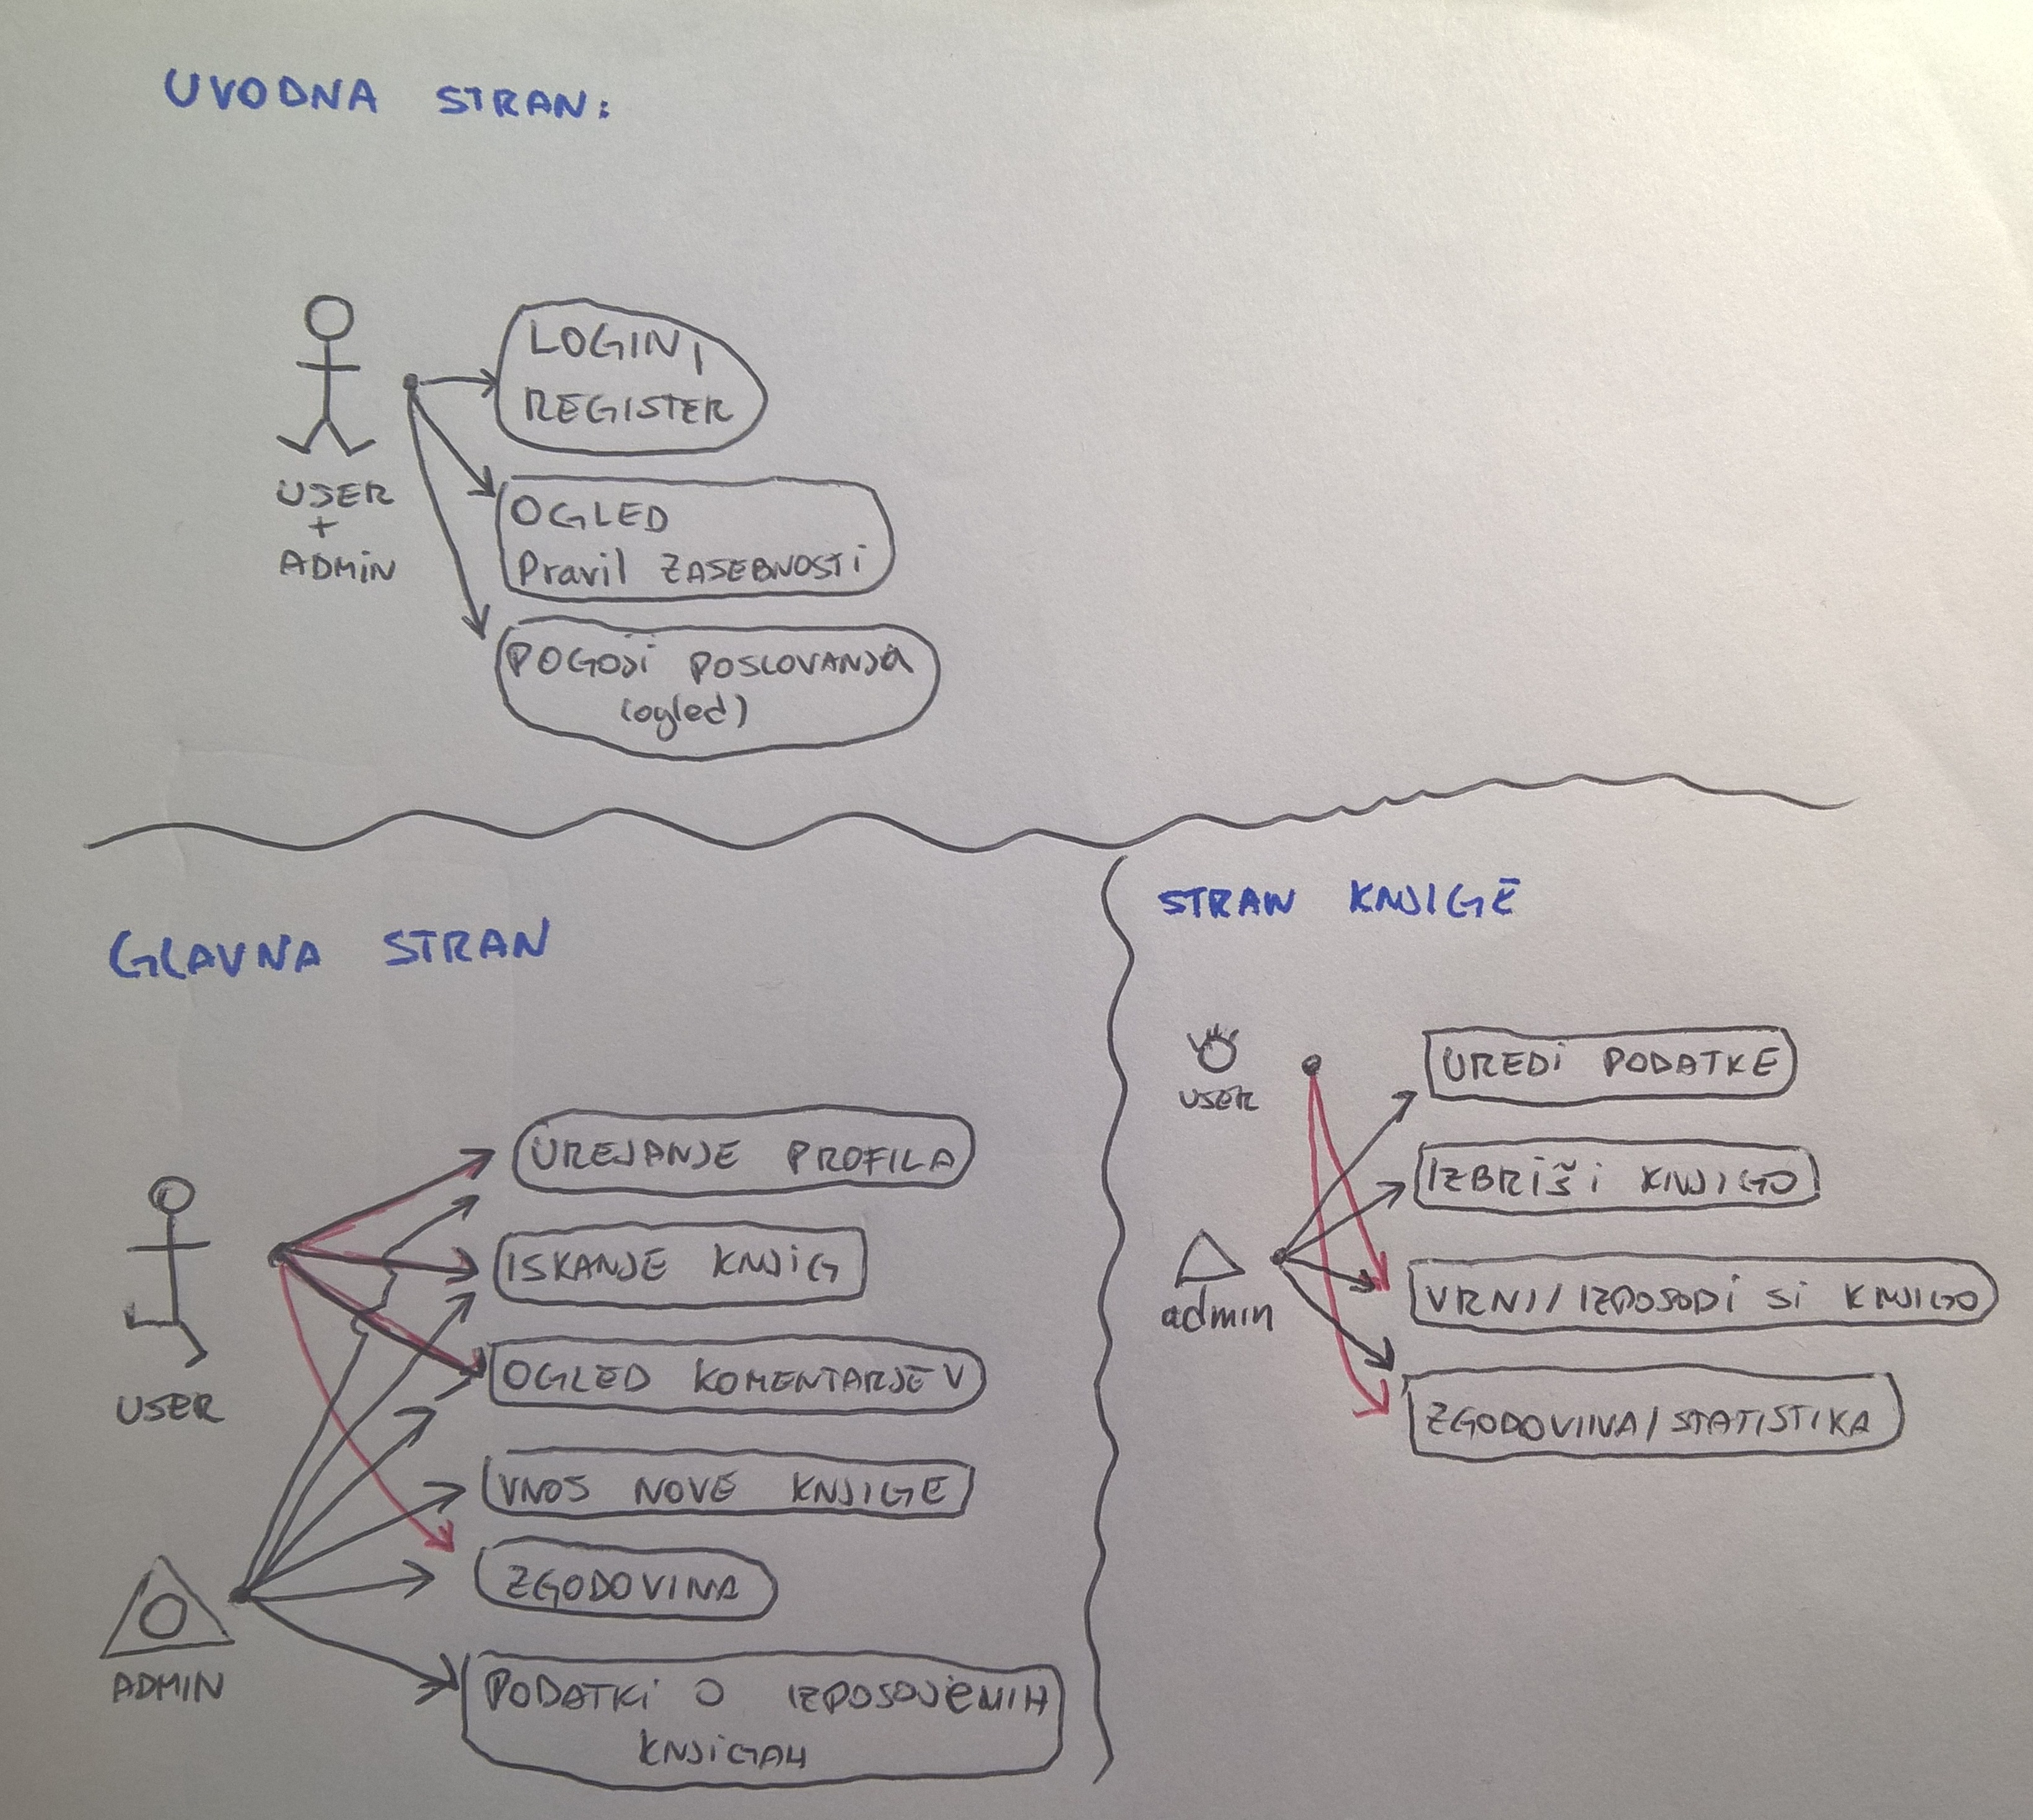 UVODNA STRAN:
LOGIN,
REGISTER
USER
+
ADMIN
OGLED
Pravil ZASEBNOSTI
POGOJI POSLOVANJA
(ogled)
GLAVNA STRAN
USER
ADMIN
UREJANJE PROFILA
ISKANJE KNJIG
OGLED KOMENTARJEV
VNOS NOVE KNJIGE
ZGODOVINA
PODATKI O IZPOSOJENIH
KNJIGAH
STRAN KNJIGE
USER
admin
UREDI PODATKE
IZBRIŠI KNJIGO
VRNI/IZPOSODI SI KNJIGO
ZGODOVINA/STATISTIKA